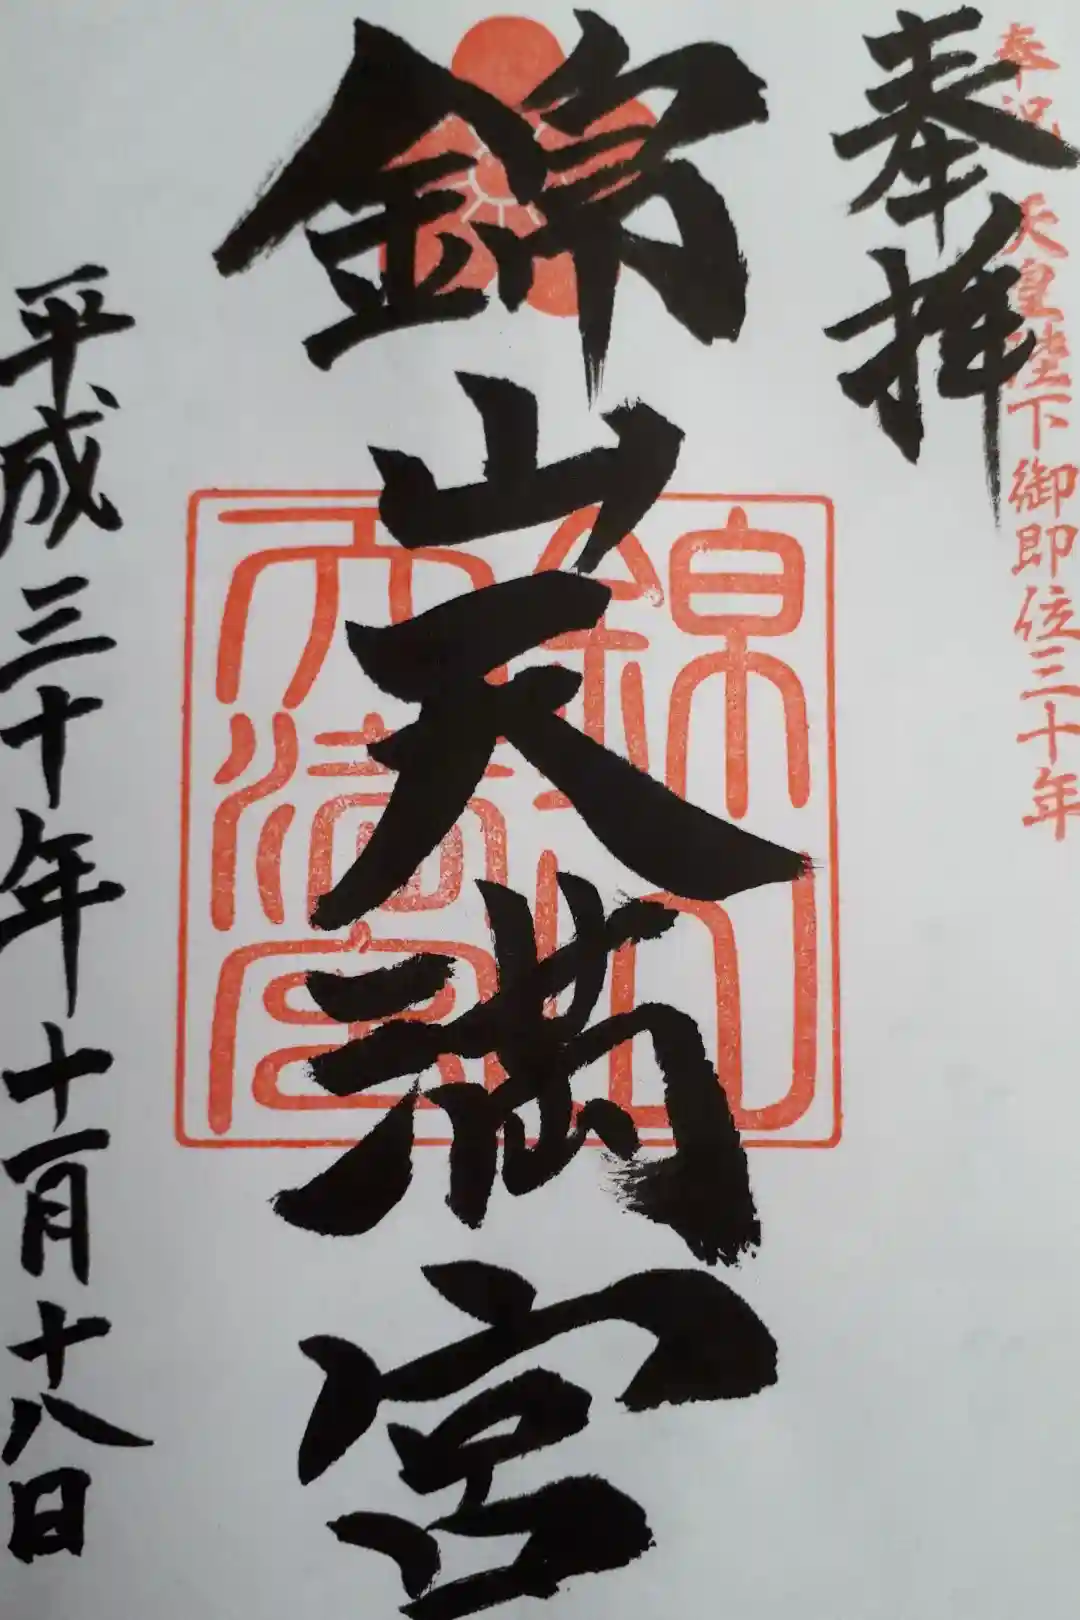 奉祝 天皇陛下御即位三十年
奉拝
錦山天満宮
錦山
天満宮
平成三十年十一月十八日